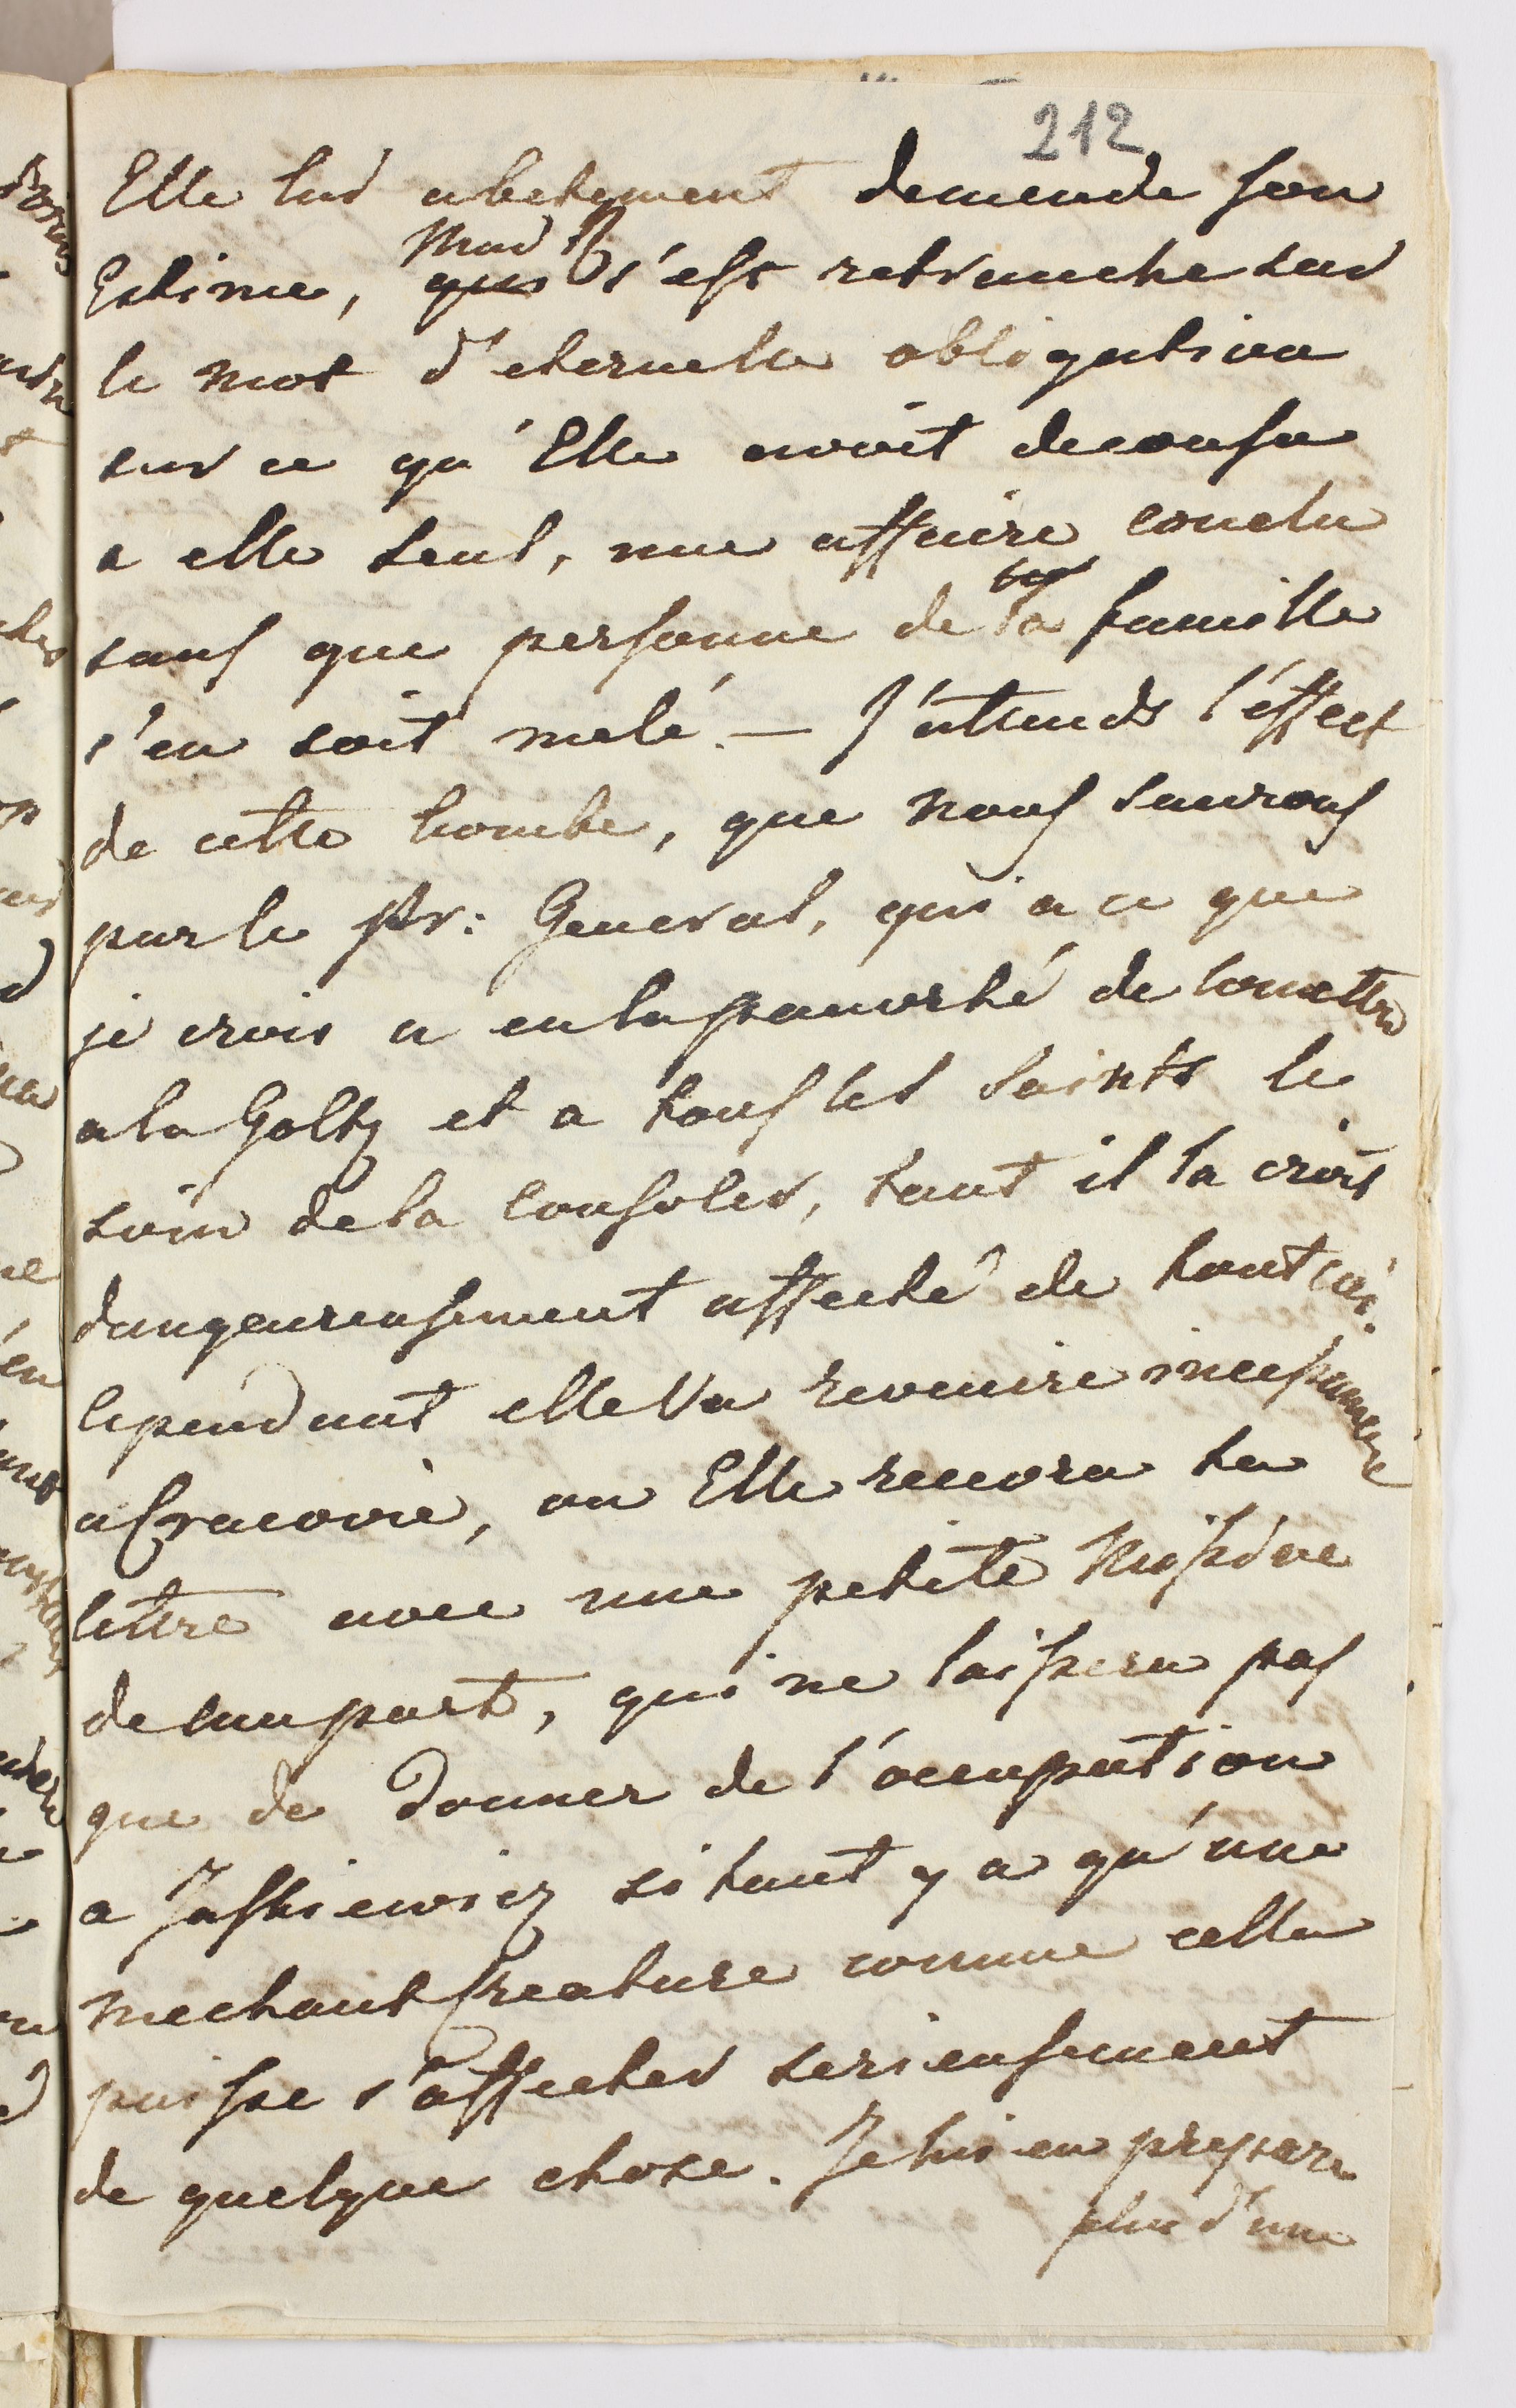 212
Elle lui abetement demende son
Estime, Mad s'est retranche sur
le mot d'eternelle obligation
sur ce qu'Elle avoit decousu
a elle seul, une affaire conclu
sans que personne de la famille
s'en soit melé. — J'attends l'éffect
de cette bombe, que nous saurons
par le Pr: General, qui a ce que
je crois a eu la pauvorté de comettre
a la Goltz et a tous les saints le
soin de la consoler, tant il la crois
dangeureusement affecté de tout ceci.
Cependant elle va revenire incessament
a Cracovie, ou Elle recevra ta
lettre avec une petite
de ma part, qui ne laissera pas
que de donner de l'occupation
a Jaskiewicz si tant y a qu'une
mechant Creature comme cella
puisse s'affecter serieusement
de quelque chose. Je lui en prepare
plus d'une